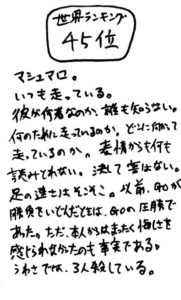 世界ランキング
45位
マシュマロ。
いつも走っている。
彼が何者なのか、誰も知らない。
何のために走っているのか。どこに向って
走っているのか。表情からも何も
読みとれない。決して喋らない。
足の速さはそこそこ。以前、GOが
勝負をいどんだときは、GOの圧勝で
あった。ただ、本人からはまったく悔しさを
感じられなかったのも事実である。
うわさでは、3人殺している。